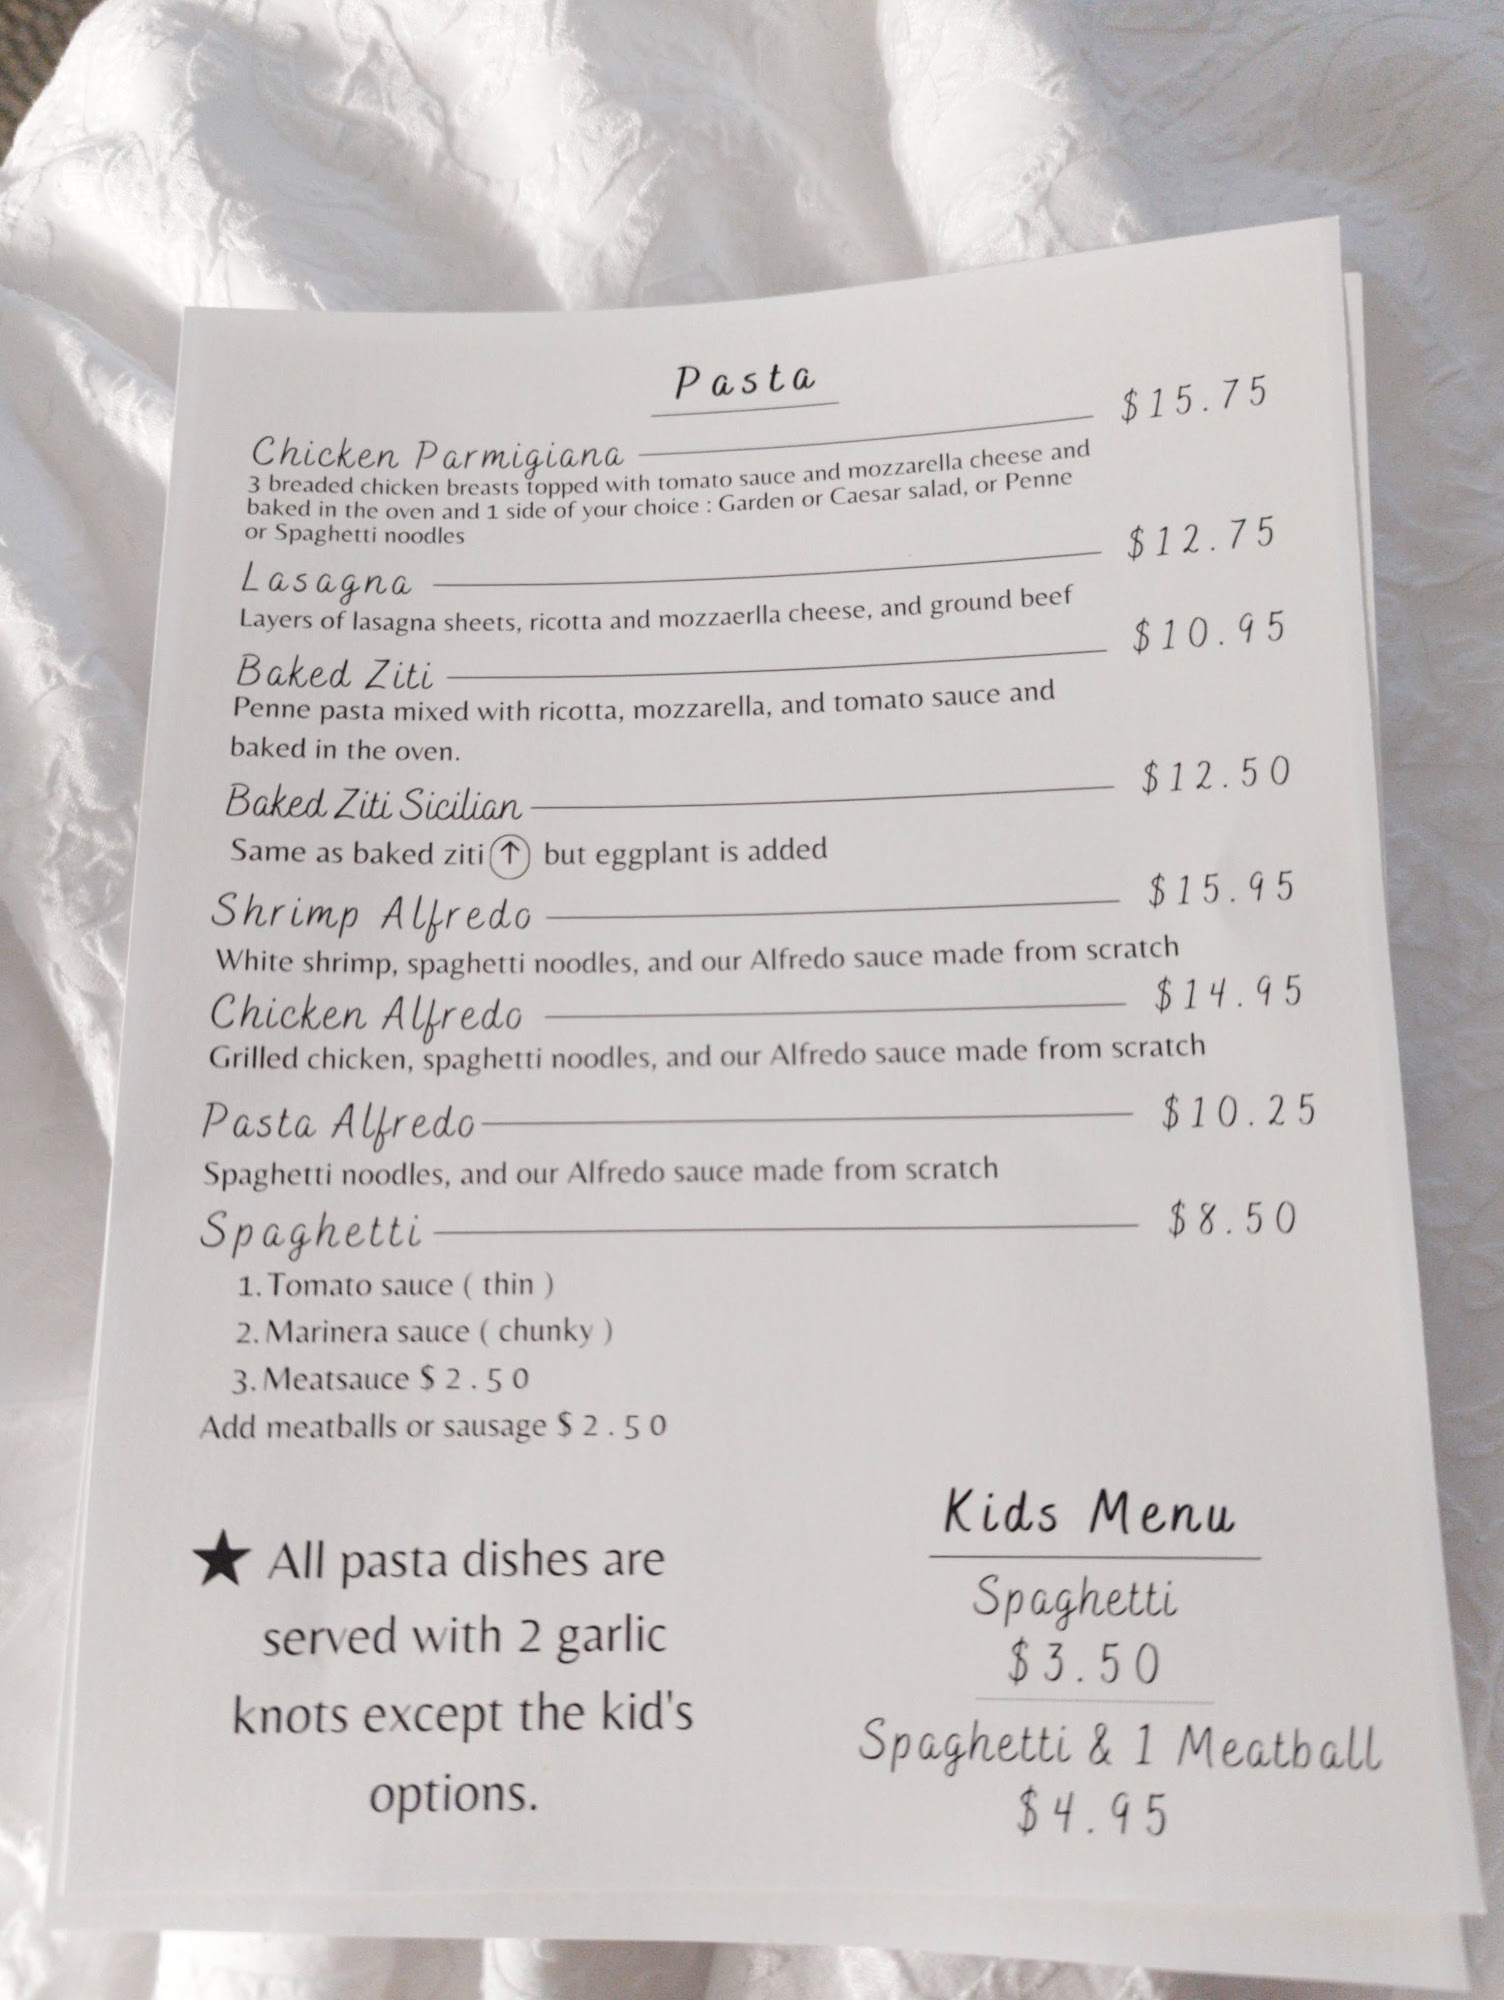 Pasta
Chicken Parmigiana $15.75
3 breaded chicken breasts topped with tomato sauce and mozzarella cheese and
baked in the oven and 1 side of your choice : Garden or Caesar salad, or Penne
or Spaghetti noodles
Lasagna $12.75
Layers of lasagna sheets, ricotta and mozzaerlla cheese, and ground beef
Baked Ziti $10.95
Penne pasta mixed with ricotta, mozzarella, and tomato sauce and
baked in the oven.
Baked Ziti Sicilian $12.50
Same as baked ziti ↑ but eggplant is added
Shrimp Alfredo $15.95
White shrimp, spaghetti noodles, and our Alfredo sauce made from scratch
Chicken Alfredo $14.95
Grilled chicken, spaghetti noodles, and our Alfredo sauce made from scratch
Pasta Alfredo $10.25
Spaghetti noodles, and our Alfredo sauce made from scratch
Spaghetti $8.50
1. Tomato sauce ( thin )
2. Marinera sauce ( chunky )
3. Meatsauce $2.50
Add meatballs or sausage $2.50
★ All pasta dishes are
served with 2 garlic
knots except the kid's
options.
Kids Menu
Spaghetti
$3.50
Spaghetti & 1 Meatball
$4.95